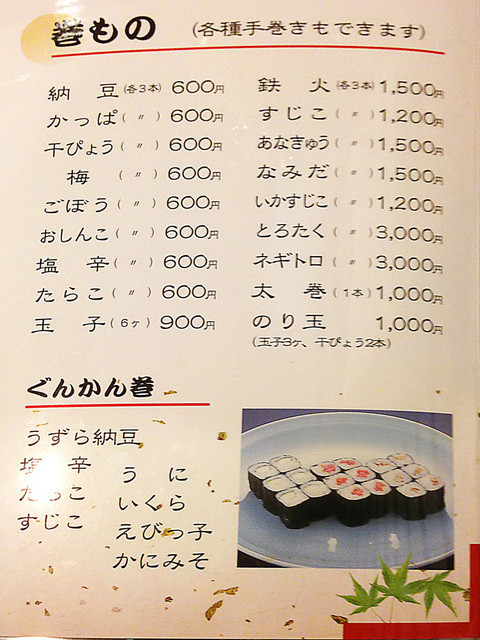 巻もの (各種手巻きもできます)
納豆(各3本) 600円
かっぱ(〃) 600円
干ぴょう(〃) 600円
梅(〃) 600円
ごぼう(〃) 600円
おしんこ(〃) 600円
塩辛(〃) 600円
たらこ(〃) 600円
玉子(6ヶ) 900円
鉄火(各3本) 1,500円
すじこ(〃) 1,200円
あなきゅう(〃) 1,500円
なみだ(〃) 1,500円
いかすじこ(〃) 1,200円
とろたく(〃) 3,000円
ネギトロ(〃) 3,000円
太巻(1本) 1,000円
のり玉 1,000円
(玉子3ヶ、干ぴょう2本)
ぐんかん巻
うずら納豆
塩辛
たらこ
すじこ
うに
いくら
えびっ子
かにみそ